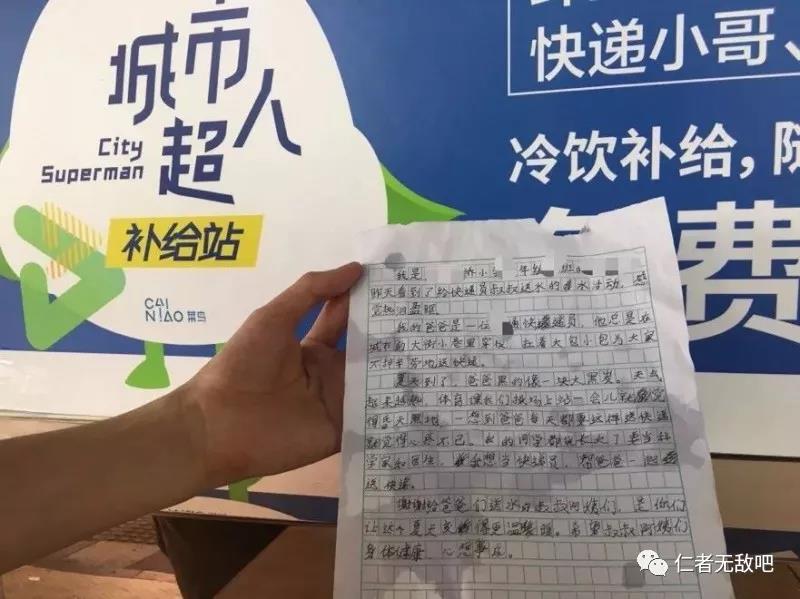 城市
超人
City
Superman
补给站
CAI
NIAO 菜鸟
快递小哥、
冷饮补给，随
免费
我是 小 年级 班
昨天看到了给快递员叔叔送水的 水活动，
当地
我的爸爸是一位 通快递员，他总是在
城市的大街小巷里穿梭，拉着大包小包为大家
不辞辛劳地送快递。
夏天到了，爸爸黑的像一块大黑炭。天气
越来越热，体育课我们操场上站一会儿就感觉
得昏天黑地，想到爸爸每天都要这样送快递
就觉得心疼不已。我的同学都说长大了要当科
学家和医生，我想当快递员，帮爸爸一起
送快递。
谢谢给爸爸们送水的叔叔阿姨们，是你们
让这个夏天变得更温暖。希望叔叔阿姨们
身体健康，心想事成。
仁者无敌吧